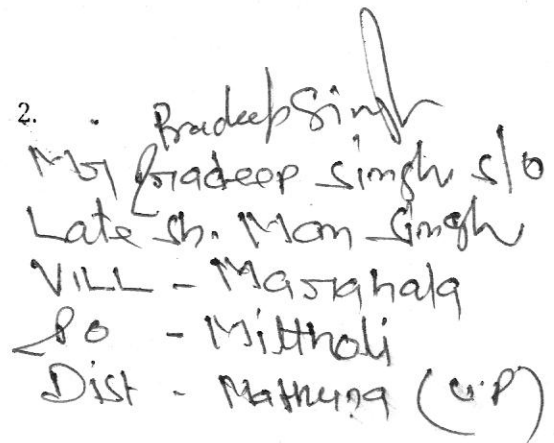 2. Pradeep Singh
Mr Pradeep Singh S/o
Late Sh. Man Singh
VILL - Marahala
Po - Mittholi
Dist - Mathura (U.P)